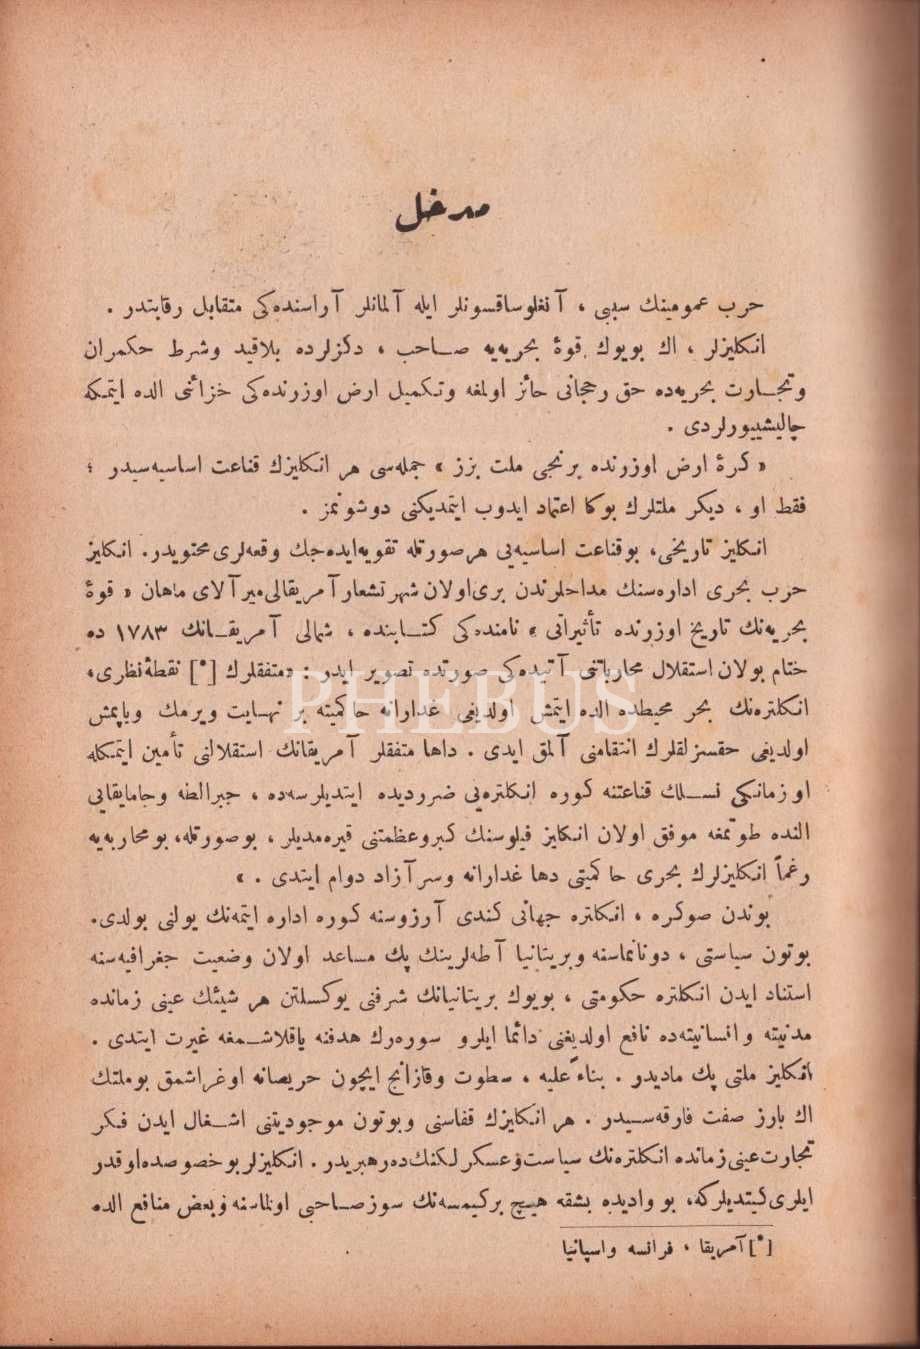 مدخل
حرب عمومینك سببی ، آنغلوساقسونلر ایله آلمانلر آراسنده‌كی متقابل رقابتدر .
انكلیزلر ، اك بویوك قوۀ بحریه‌یه صاحب ، دكزلرده بلاقید وشرط حكمران
وتجارت بحریه‌ده حق رجحانی حائز اولمغه وتكمیل ارض اوزرنده‌كی خزائنی الده ایتمكه
چالیشییورلردی .
« كرۀ ارض اوزرنده برنجی ملت بزز » جمله‌سی هر انكلیزك قناعت اساسیه‌سیدر ؛
فقط او ، دیكر ملتلرك بوكا اعتماد ایدوب ایتمدیكنی دوشونمز .
انكلیز تاریخی، بوقناعت اساسیه‌یی هرصورتله تقویه‌ایده‌جك وقعه‌لری محتویدر. انكلیز
حرب بحری اداره‌سنك مداحلرندن بری‌اولان شهرتشعار آمریقالی‌میرآلای ماهان « قوۀ
بحریه‌نك تاریخ اوزرنده تأثیراتی » نامنده‌كی كتابنده ، شمالی آمریقانك ١٧٨٣ ده
ختام بولان استقلال محارباتنی آتیده‌كی صورتده تصویر ایدر : «متفقلرك [*] نقطۀ نظری،
انكلتره‌نك بحر محیطده الده ایتمش اولدیغی غدارانه حاكمیته بر نهایت ویرمك ویاپمش
اولدیغی حقسزلقلرك انتقامنی آلمق ایدی . داها متفقلر آمریقانك استقلالنی تأمین ایتمكله
اوزمانكی نسلك قناعتنه كوره انكلتره‌یی ضرردیده ایتدیلرسه‌ده ، جبرالطه وجامایقایی
النده طوتمغه موفق اولان انكلیز فیلوسنك كبروعظمتنی قیره‌مدیلر ، بوصورتله، بومحاربه‌یه
رغماً انكلیزلرك بحری حاكمیتی دها غدارانه وسرآزاد دوام ایتدی . »
بوندن صوكره ، انكلتره جهانی كندی آرزوسنه كوره اداره ایتمه‌نك یولنی بولدی.
بوتون سیاستی ، دونانماسنه وبریتانیا آطه‌لرینك پك مساعد اولان وضعیت جغرافیه‌سنه
استناد ایدن انكلتره حكومتی ، بویوك بریتانیانك شرفنی یوكسلتن هر شیئك عینی زمانده
مدنیته وانسانیته‌ده نافع اولدیغنی دائما ایلرو سوره‌رك هدفنه یاقلاشمغه غیرت ایتدی .
انكلیز ملتی پك مادیدر . بناءً علیه ، سطوت وقازانج ایچون حریصانه اوغراشمق بوملتك
اك بارز صفت فارقه‌سیدر . هر انكلیزك قفاسنی وبوتون موجودیتنی اشغال ایدن فكر
تجارت عینی زمانده انكلتره‌نك سیاست وعسكرلكنك‌ده رهبریدر . انكلیزلر بوخصوصده‌اوقدر
ایلری كیتدیلركه، بو وادیده بشقه هیچ بركیمسه‌نك سوزصاحبی اولماسنه وبعض منافع الده
[*] آمریقا ، فرانسه واسپانیا
PHEBUS